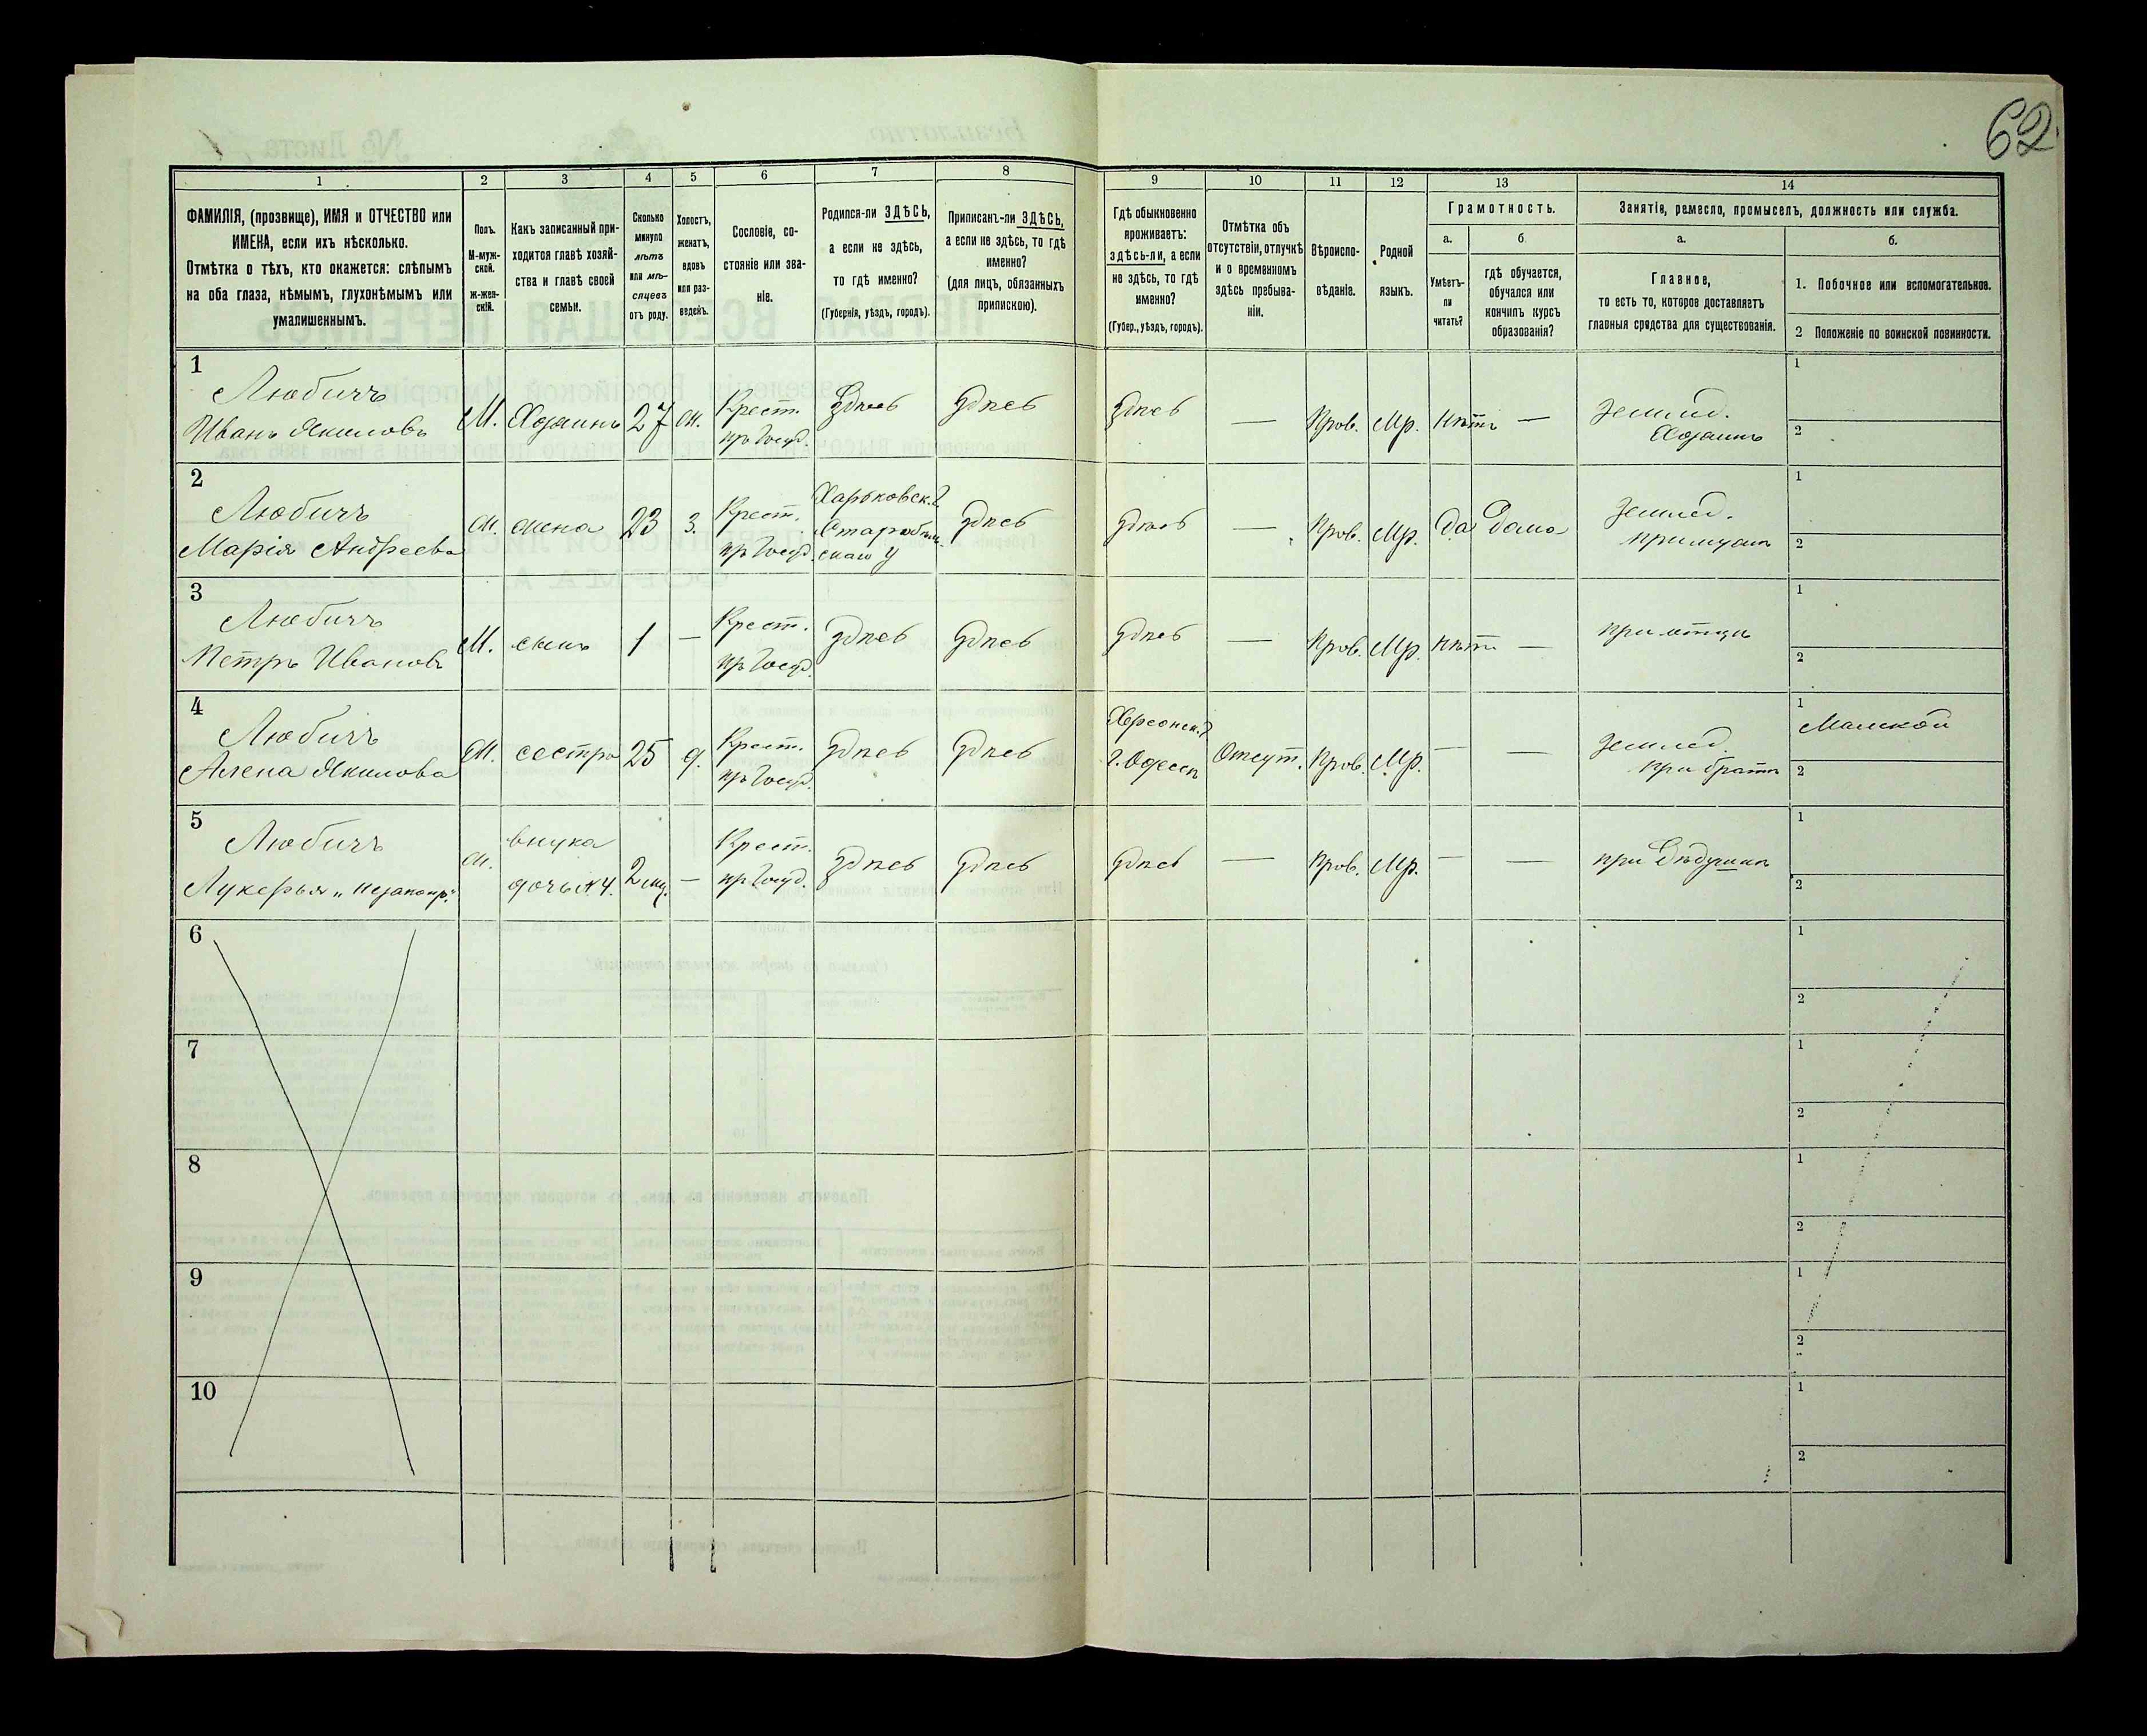 62.
1 2 3 4 5 6 7 8 9 10 11 12 13 14
ФАМИЛІЯ, (прозвище), ИМЯ и ОТЧЕСТВО или
ИМЕНА, если ихъ нѣсколько.
Отмѣтка о тѣхъ, кто окажется: слѣпымъ
на оба глаза, нѣмымъ, глухонѣмымъ или
умалишеннымъ.
Полъ.
М-муж-
ской.
ж-жен-
скій.
Какъ записанный при-
ходится главѣ хозяй-
ства и главѣ своей
семьи.
Сколько
минуло
лѣтъ
или мѣ-
сяцевъ
отъ роду.
Холостъ,
женатъ,
вдовъ
или раз-
веденъ.
Сословіе, со-
стояніе или зва-
ніе.
Родился-ли ЗДѢСЬ,
а если не здѣсь,
то гдѣ именно?
(Губернія, уѣздъ, городъ).
Приписанъ-ли ЗДѢСЬ,
а если не здѣсь, то гдѣ
именно?
(для лицъ, обязанныхъ
припискою).
Гдѣ обыкновенно
проживаетъ:
здѣсь-ли, а если
не здѣсь, то гдѣ
именно?
(Губер., уѣздъ, городъ).
Отмѣтка объ
отсутствіи, отлучкѣ
и о временномъ
здѣсь пребыва-
ніи.
Вѣроиспо-
вѣданіе.
Родной
языкъ.
Грамотность.
а.
Умѣетъ-
ли
читать?
б
гдѣ обучается,
обучался или
кончилъ курсъ
образованія?
Занятіе, ремесло, промыселъ, должность или служба.
а.
Главное,
то есть то, которое доставляетъ
главныя средства для существованія.
б.
1. Побочное или вспомогательное.
2 Положеніе по воинской повинности.
1
Любичъ
Иванъ Якимовъ
М. Хозяинъ 27 ж. Крест.
изъ Госуд. здѣсь здѣсь здѣсь — Прав. Мр. нѣтъ — Землед.
Хозяинъ
1
2
2
Любичъ
Марія Андреева
ж. жена 23 з. Крест.
изъ Госуд. Харьковск. г.
Старобѣль
скаго у здѣсь здѣсь — Прав. Мр. да Дома Землед.
при мужѣ
1
2
3
Любичъ
Петръ Ивановъ
М. сынъ 1 — Крест.
изъ Госуд. здѣсь здѣсь здѣсь — Прав. Мр. нѣтъ — при отцѣ
1
2
4
Любичъ
Алена Якимова
ж. сестра 25 д. Крест.
изъ Госуд. здѣсь здѣсь Херсонск. г.
г. Одесса Отсут. Прав. Мр. — — Землед.
при братѣ
1
2
5
Любичъ
Лукерья „незаконр."
ж. внука
дочь № 4. 2 мц. — Крест.
изъ Госуд. здѣсь здѣсь здѣсь — Прав. Мр. — — при Дѣдушкѣ
1
2
6
1
2
7
1
2
8
1
2
9
1
2
10
1
2